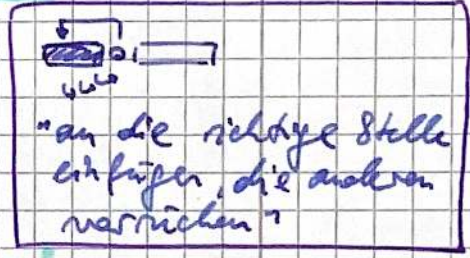 "an die richtige Stelle
einfügen, die anderen
verrücken"